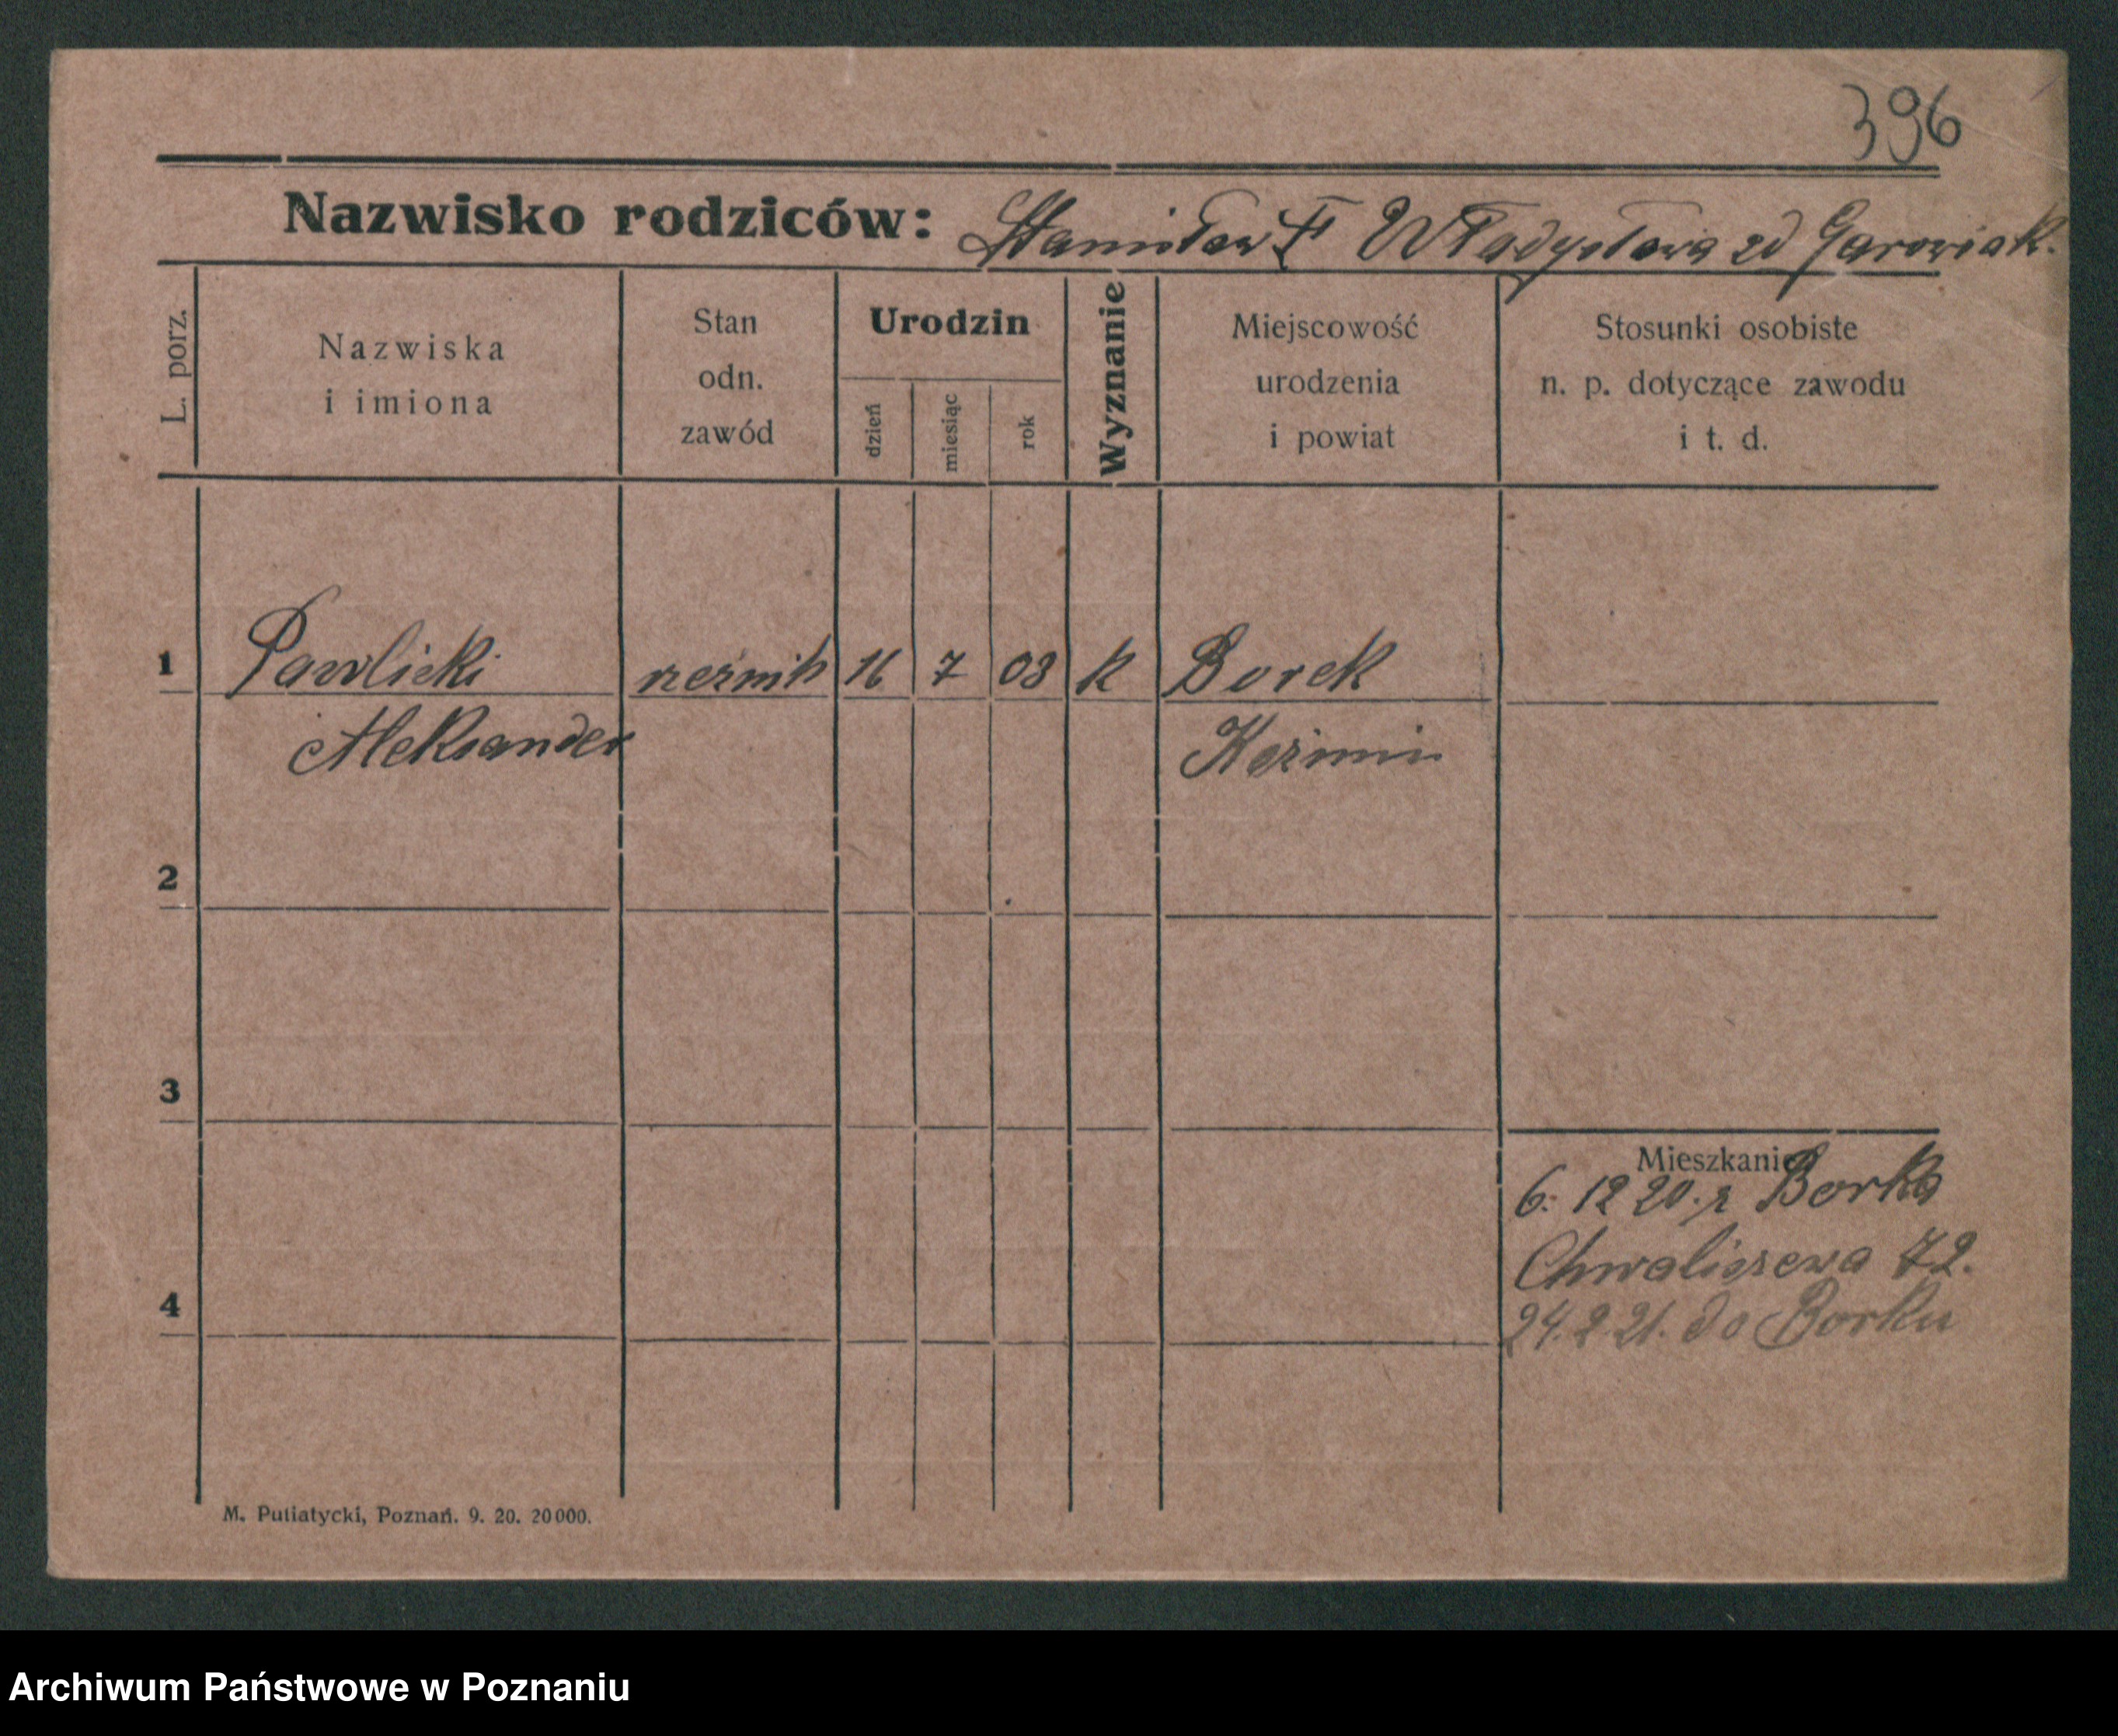 396
Nazwisko rodziców: Stanisław † Władysława zd Garowiak.
L. porz.
Nazwiska
i imiona
Stan
odn.
zawód
Urodzin
dzień
miesiąc
rok
Wyznanie
Miejscowość
urodzenia
i powiat
Stosunki osobiste
n. p. dotyczące zawodu
i t. d.
1 Pawlicki rzeźnik 16 7 03 k Borek
Aleksander Koźmin
2
3
Mieszkanie
6. 12 20. z Borka
Chwaliszewo 72.
4 24. 2. 21. do Borku
M. Putiatycki, Poznań. 9. 20. 20000.
Archiwum Państwowe w Poznaniu